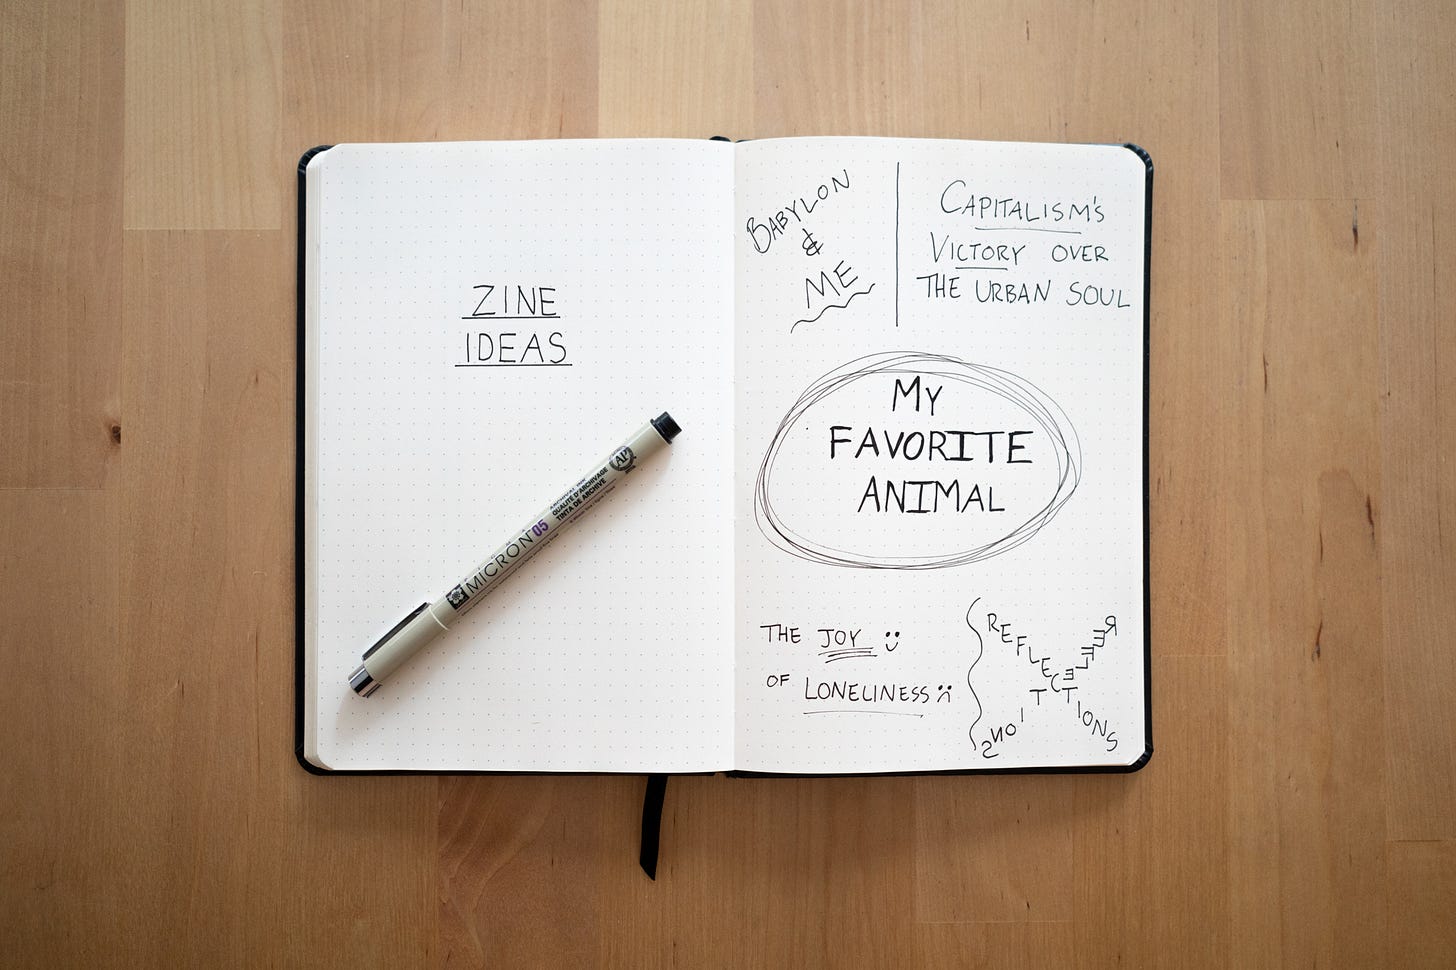 ZINE
IDEAS
MICRON 05
ARCHIVAL INK
QUALITÉ D'ARCHIVAGE
TINTA DE ARCHIVE
AP
BABYLON
&
ME
CAPITALISM'S
VICTORY OVER
THE URBAN SOUL
MY
FAVORITE
ANIMAL
THE JOY :)
OF LONELINESS :(
REFLECTIONS
REFLECTIONS